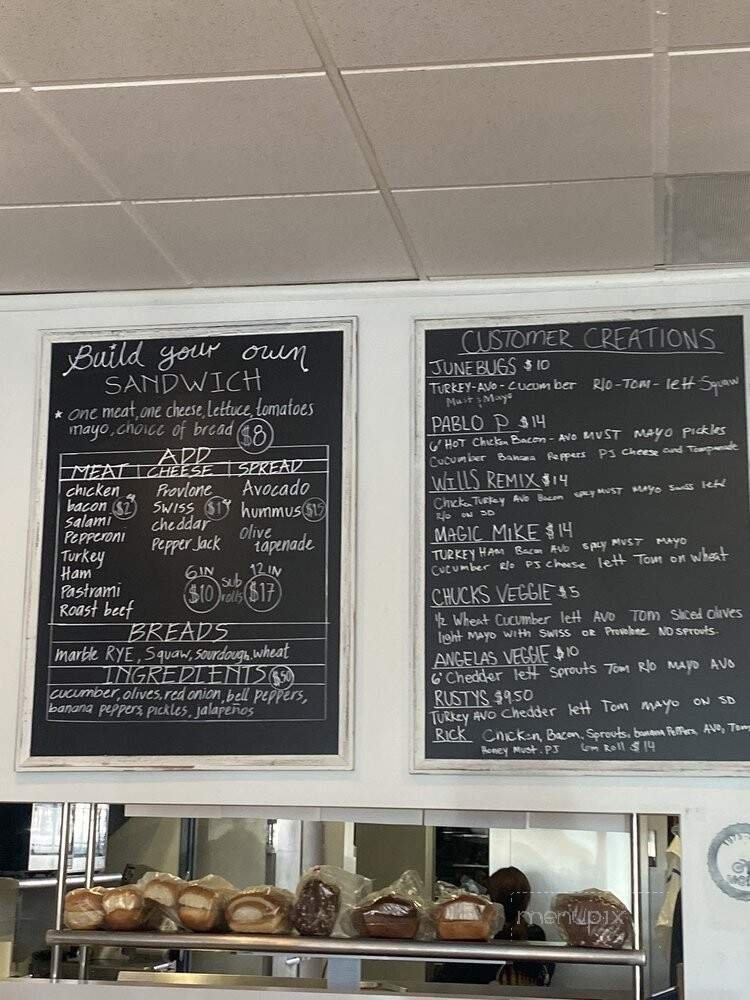 Build your own
SANDWICH
* one meat, one cheese, lettuce, tomatoes
mayo, choice of bread $8
ADD
MEAT | CHEESE | SPREAD
chicken Provlone Avocado
bacon $2 Swiss $1 hummus $1.5
salami cheddar olive
Pepperoni Pepper Jack tapenade
Turkey
Ham 6 IN 12 IN
Pastrami $10 sub rolls $17
Roast beef
BREADS
marble RYE, Squaw, sourdough, wheat
INGREDIENTS $.50
cucumber, olives, red onion, bell peppers,
banana peppers, pickles, jalapeños
CUSTOMER CREATIONS
JUNEBUGS $10
TURKEY-AVO-Cucumber R/O-TOM-lett-Squaw
Must & Mayo
PABLO P $14
6" HOT Chicken Bacon - AVO MUST MAYO PICKLES
Cucumber Banana Peppers PJ Cheese and Tampenade
WILLS REMIX $14
Chicken Turkey AVO Bacon spcy MUST MAYO Swiss lett
R/O on SD
MAGIC MIKE $14
TURKEY HAM Bacon AVO spcy MUST MAYO
Cucumber R/O PJ Cheese lett Tom on Wheat
CHUCKS VEGGIE $5
½ Wheat Cucumber lett AVO TOM Sliced Olives
light MAYO WITH SWISS OR Provolone NO sprouts.
ANGELAS VEGGIE $10
6" Chedder lett Sprouts Tom R/O MAYO AVO
RUSTYS $9.50
Turkey AVO Chedder lett Tom MAYO ON SD
RICK Chicken, Bacon, Sprouts, banana Peppers, AVO, Tom
Honey Must. PJ 6in Roll $14
menupix